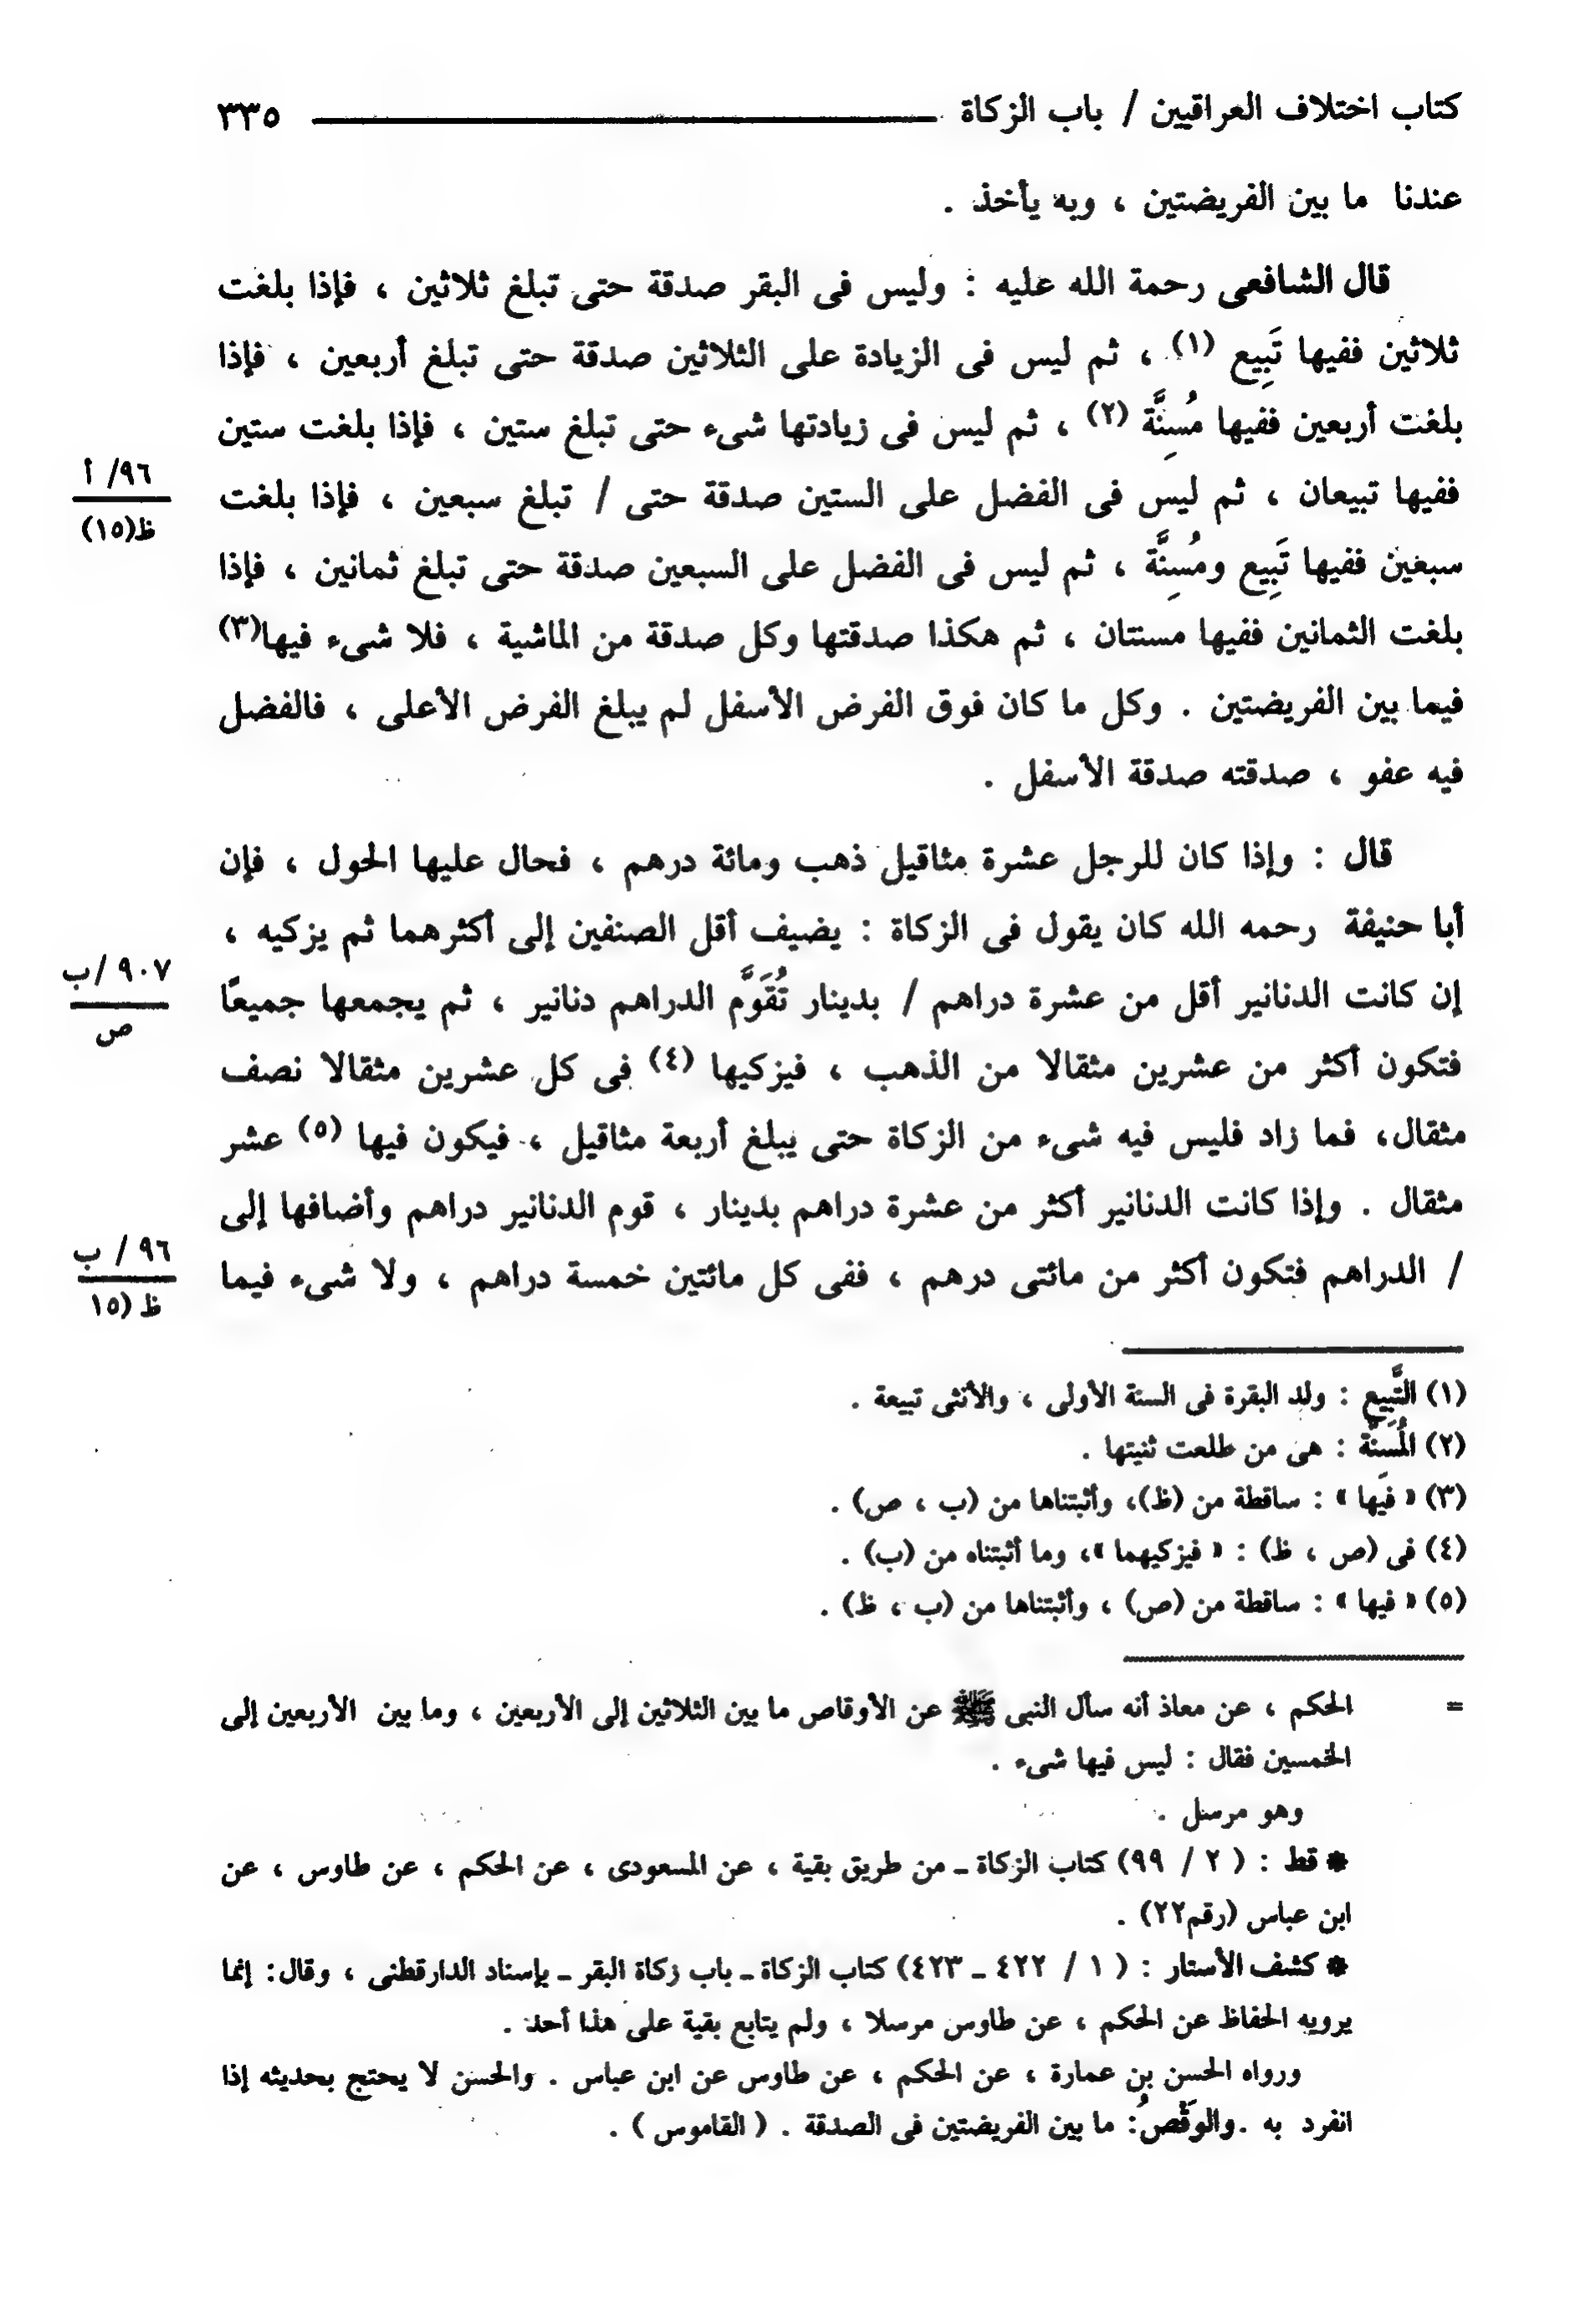 كتاب اختلاف العراقيين / باب الزكاة ــــــــــــــــ ٣٣٥
عندنا ما بين الفريضتين ، وبه يأخذ .
قال الشافعى رحمة الله عليه : وليس فى البقر صدقة حتى تبلغ ثلاثين ، فإذا بلغت
ثلاثين ففيها تَبِيع (١) ، ثم ليس فى الزيادة على الثلاثين صدقة حتى تبلغ أربعين ، فإذا
بلغت أربعين ففيها مُسِنَّة (٢) ، ثم ليس فى زيادتها شىء حتى تبلغ ستين ، فإذا بلغت ستين
ففيها تبيعان ، ثم ليس فى الفضل على الستين صدقة حتى / تبلغ سبعين ، فإذا بلغت
٩٦/ أ
ظ(١٥)
سبعين ففيها تَبِيع ومُسِنَّة ، ثم ليس فى الفضل على السبعين صدقة حتى تبلغ ثمانين ، فإذا
بلغت الثمانين ففيها مسنتان ، ثم هكذا صدقتها وكل صدقة من الماشية ، فلا شىء فيها(٣)
فيما بين الفريضتين . وكل ما كان فوق الفرض الأسفل لم يبلغ الفرض الأعلى ، فالفضل
فيه عفو ، صدقته صدقة الأسفل .
قال : وإذا كان للرجل عشرة مثاقيل ذهب ومائة درهم ، فحال عليها الحول ، فإن
أبا حنيفة رحمه الله كان يقول فى الزكاة : يضيف أقل الصنفين إلى أكثرهما ثم يزكيه ،
إن كانت الدنانير أقل من عشرة دراهم / بدينار تُقَوَّم الدراهم دنانير ، ثم يجمعها جميعًا
٩٠٧ /ب
ص
فتكون أكثر من عشرين مثقالا من الذهب ، فيزكيها (٤) فى كل عشرين مثقالا نصف
مثقال، فما زاد فليس فيه شىء من الزكاة حتى يبلغ أربعة مثاقيل ، فيكون فيها (٥) عشر
مثقال . وإذا كانت الدنانير أكثر من عشرة دراهم بدينار ، قوم الدنانير دراهم وأضافها إلى
/ الدراهم فتكون أكثر من مائتى درهم ، ففى كل مائتين خمسة دراهم ، ولا شىء فيما
٩٦ / ب
ظ (١٥
(١) التَّبِيع : ولد البقرة فى السنة الأولى ، والأنثى تبيعة .
(٢) المُسِنَّة : هى من طلعت ثنيتها .
(٣) « فيها » : ساقطة من (ظ)، وأثبتناها من (ب ، ص) .
(٤) فى (ص ، ظ) : « فيزكيهما »، وما أثبتناه من (ب) .
(٥) « فيها » : ساقطة من (ص) ، وأثبتناها من (ب ، ظ) .
= الحكم ، عن معاذ أنه سأل النبى ﷺ عن الأوقاص ما بين الثلاثين إلى الأربعين ، وما بين الأربعين إلى
الخمسين فقال : ليس فيها شىء .
وهو مرسل .
* قط : ( ٢ / ٩٩) كتاب الزكاة ـ من طريق بقية ، عن المسعودى ، عن الحكم ، عن طاوس ، عن
ابن عباس (رقم٢٢) .
* كشف الأستار : ( ١ / ٤٢٢ ـ ٤٢٣) كتاب الزكاة ـ باب زكاة البقر ـ بإسناد الدارقطنى ، وقال: إنما
يرويه الحفاظ عن الحكم ، عن طاوس مرسلا ، ولم يتابع بقية على هذا أحد .
ورواه الحسن بن عمارة ، عن الحكم ، عن طاوس عن ابن عباس . والحسن لا يحتج بحديثه إذا
انفرد به .والوَقْصُ: ما بين الفريضتين فى الصدقة . ( القاموس ) .